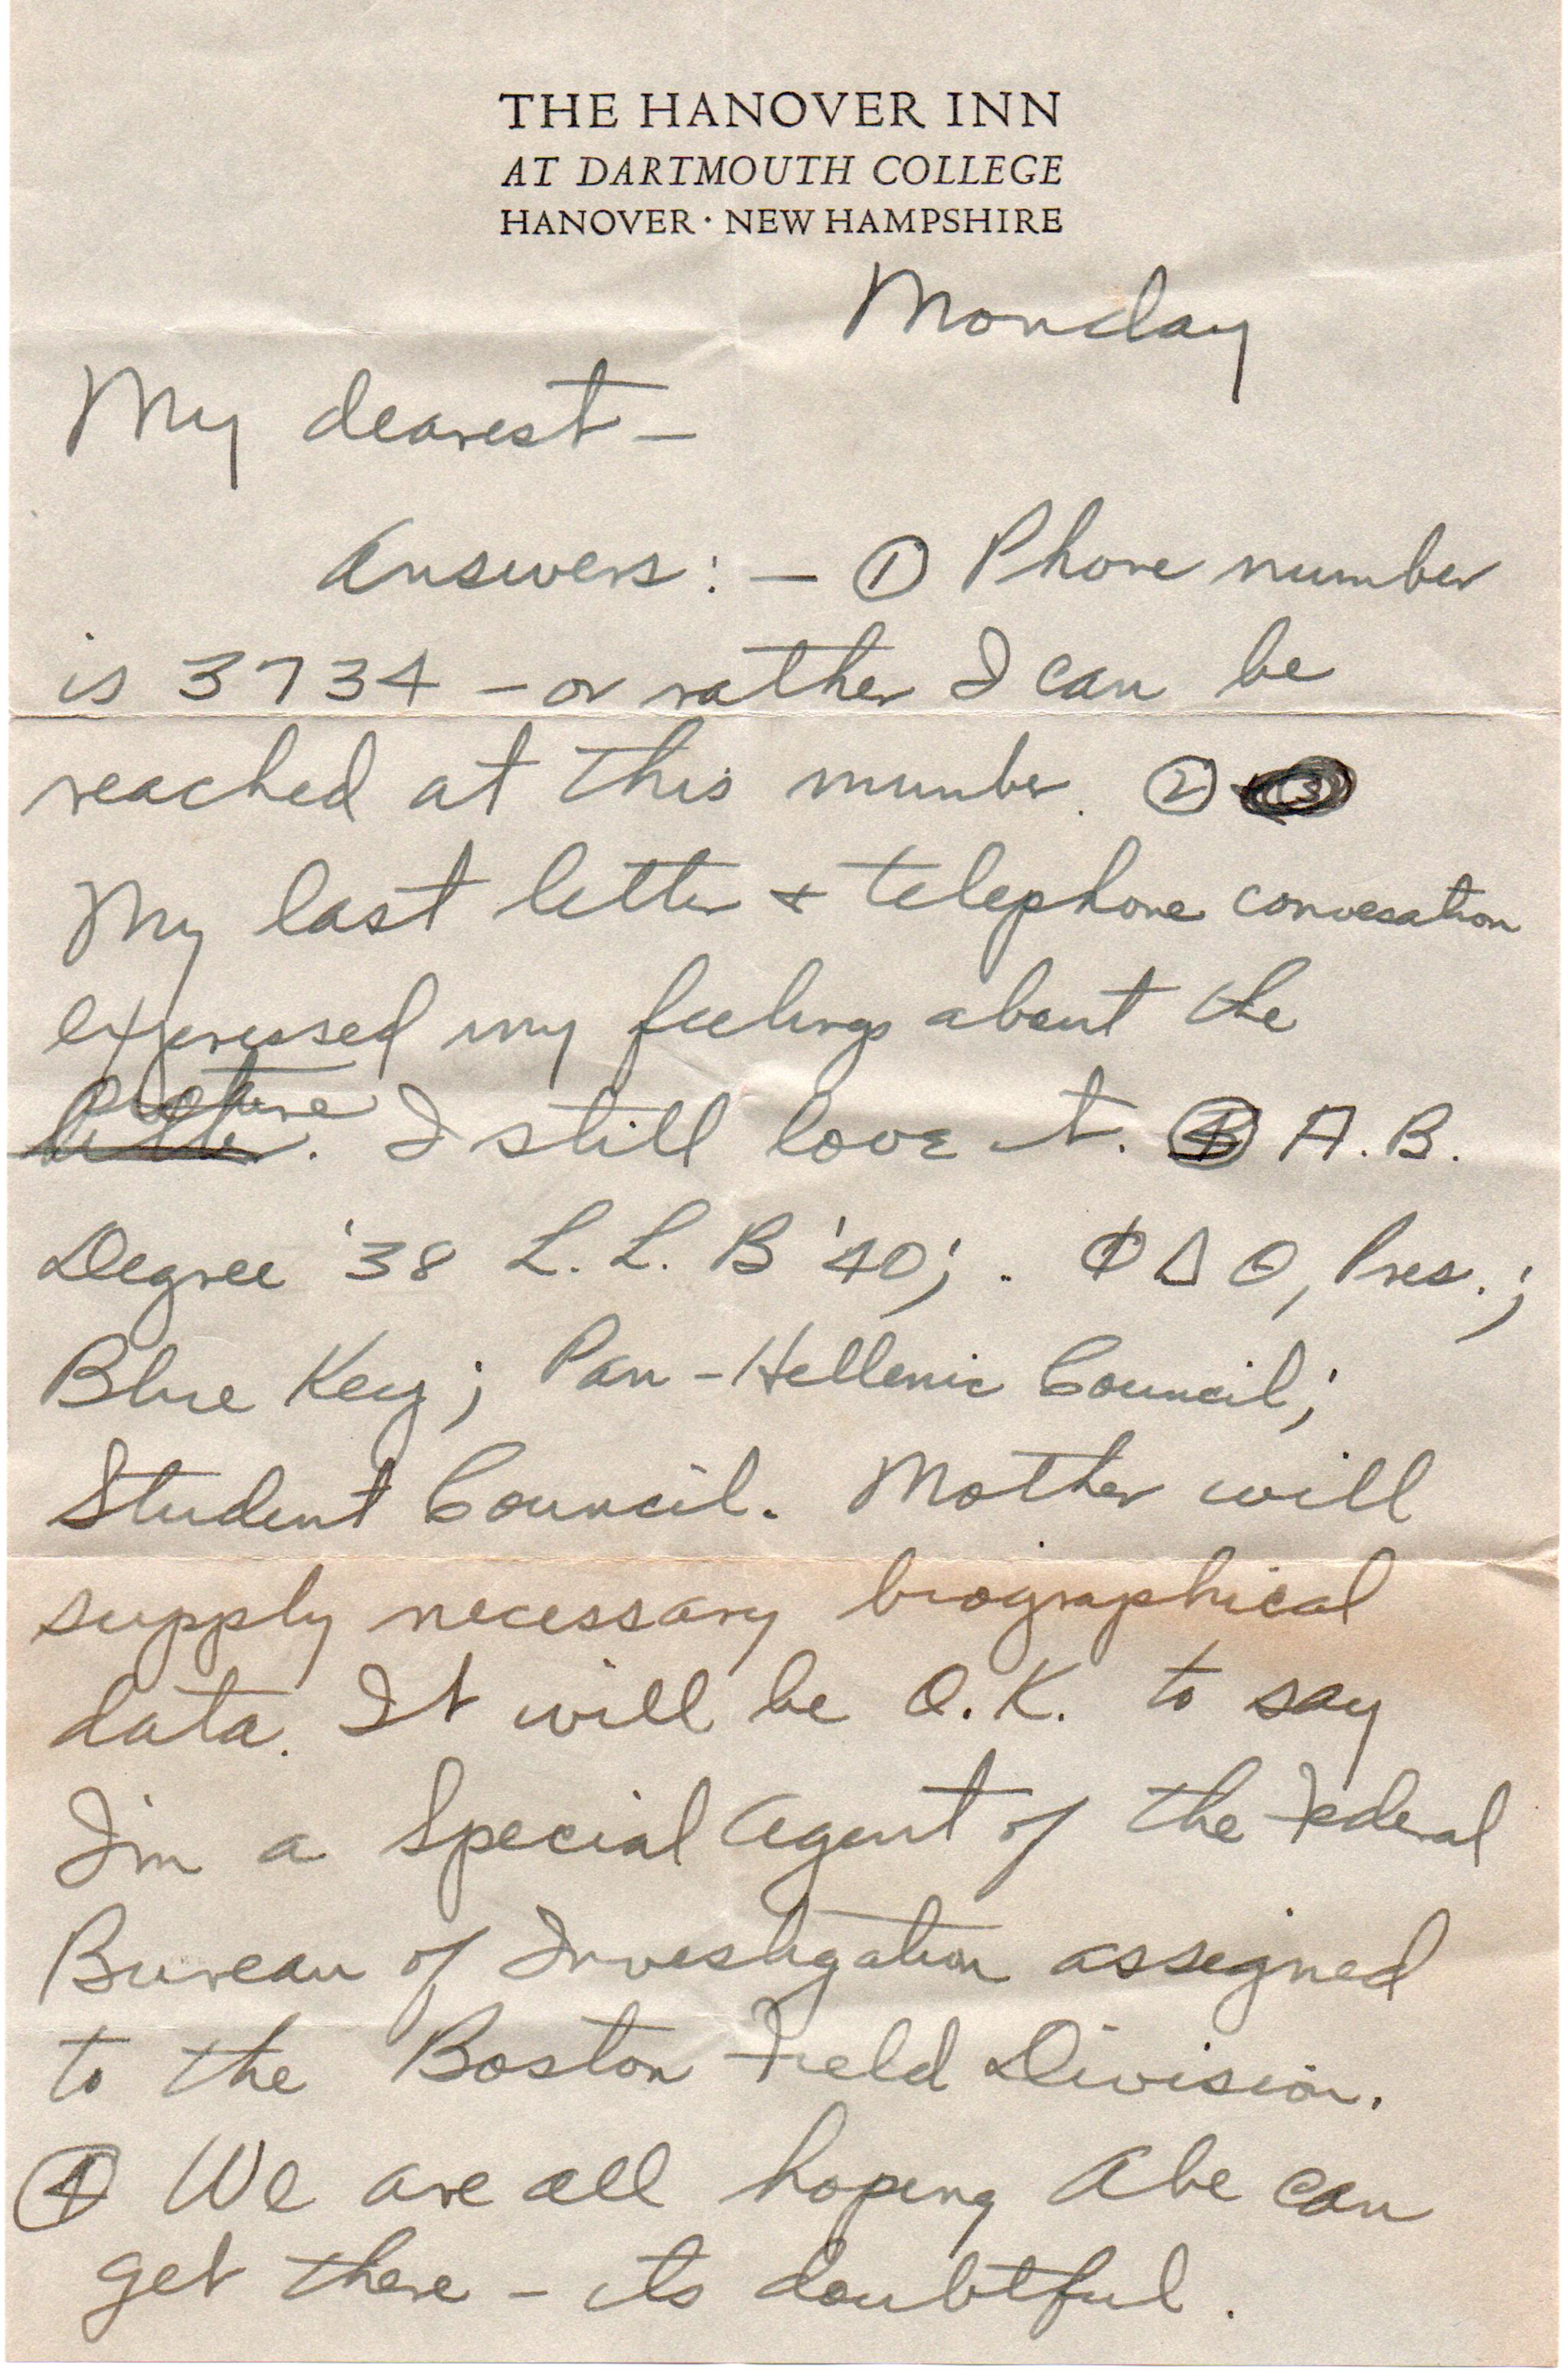 THE HANOVER INN
AT DARTMOUTH COLLEGE
HANOVER · NEW HAMPSHIRE
Monday
My dearest —
Answers : — ① Phone number
is 3734 — or rather I can be
reached at this number. ② ③
My last letter & telephone convesation
expressed my feelings about the
picture
letter. I still love it. ③ A.B.
Degree '38 L.L.B '40; . Φ Δ Θ, Pres.;
Blue Key; Pan-Hellenic Council;
Student Council. Mother will
supply necessary biographical
data. It will be O.K. to say
I'm a Special Agent of the Federal
Bureau of Investigation assigned
to the Boston Field Division.
④ We are all hoping Abe can
get there — its doubtful.